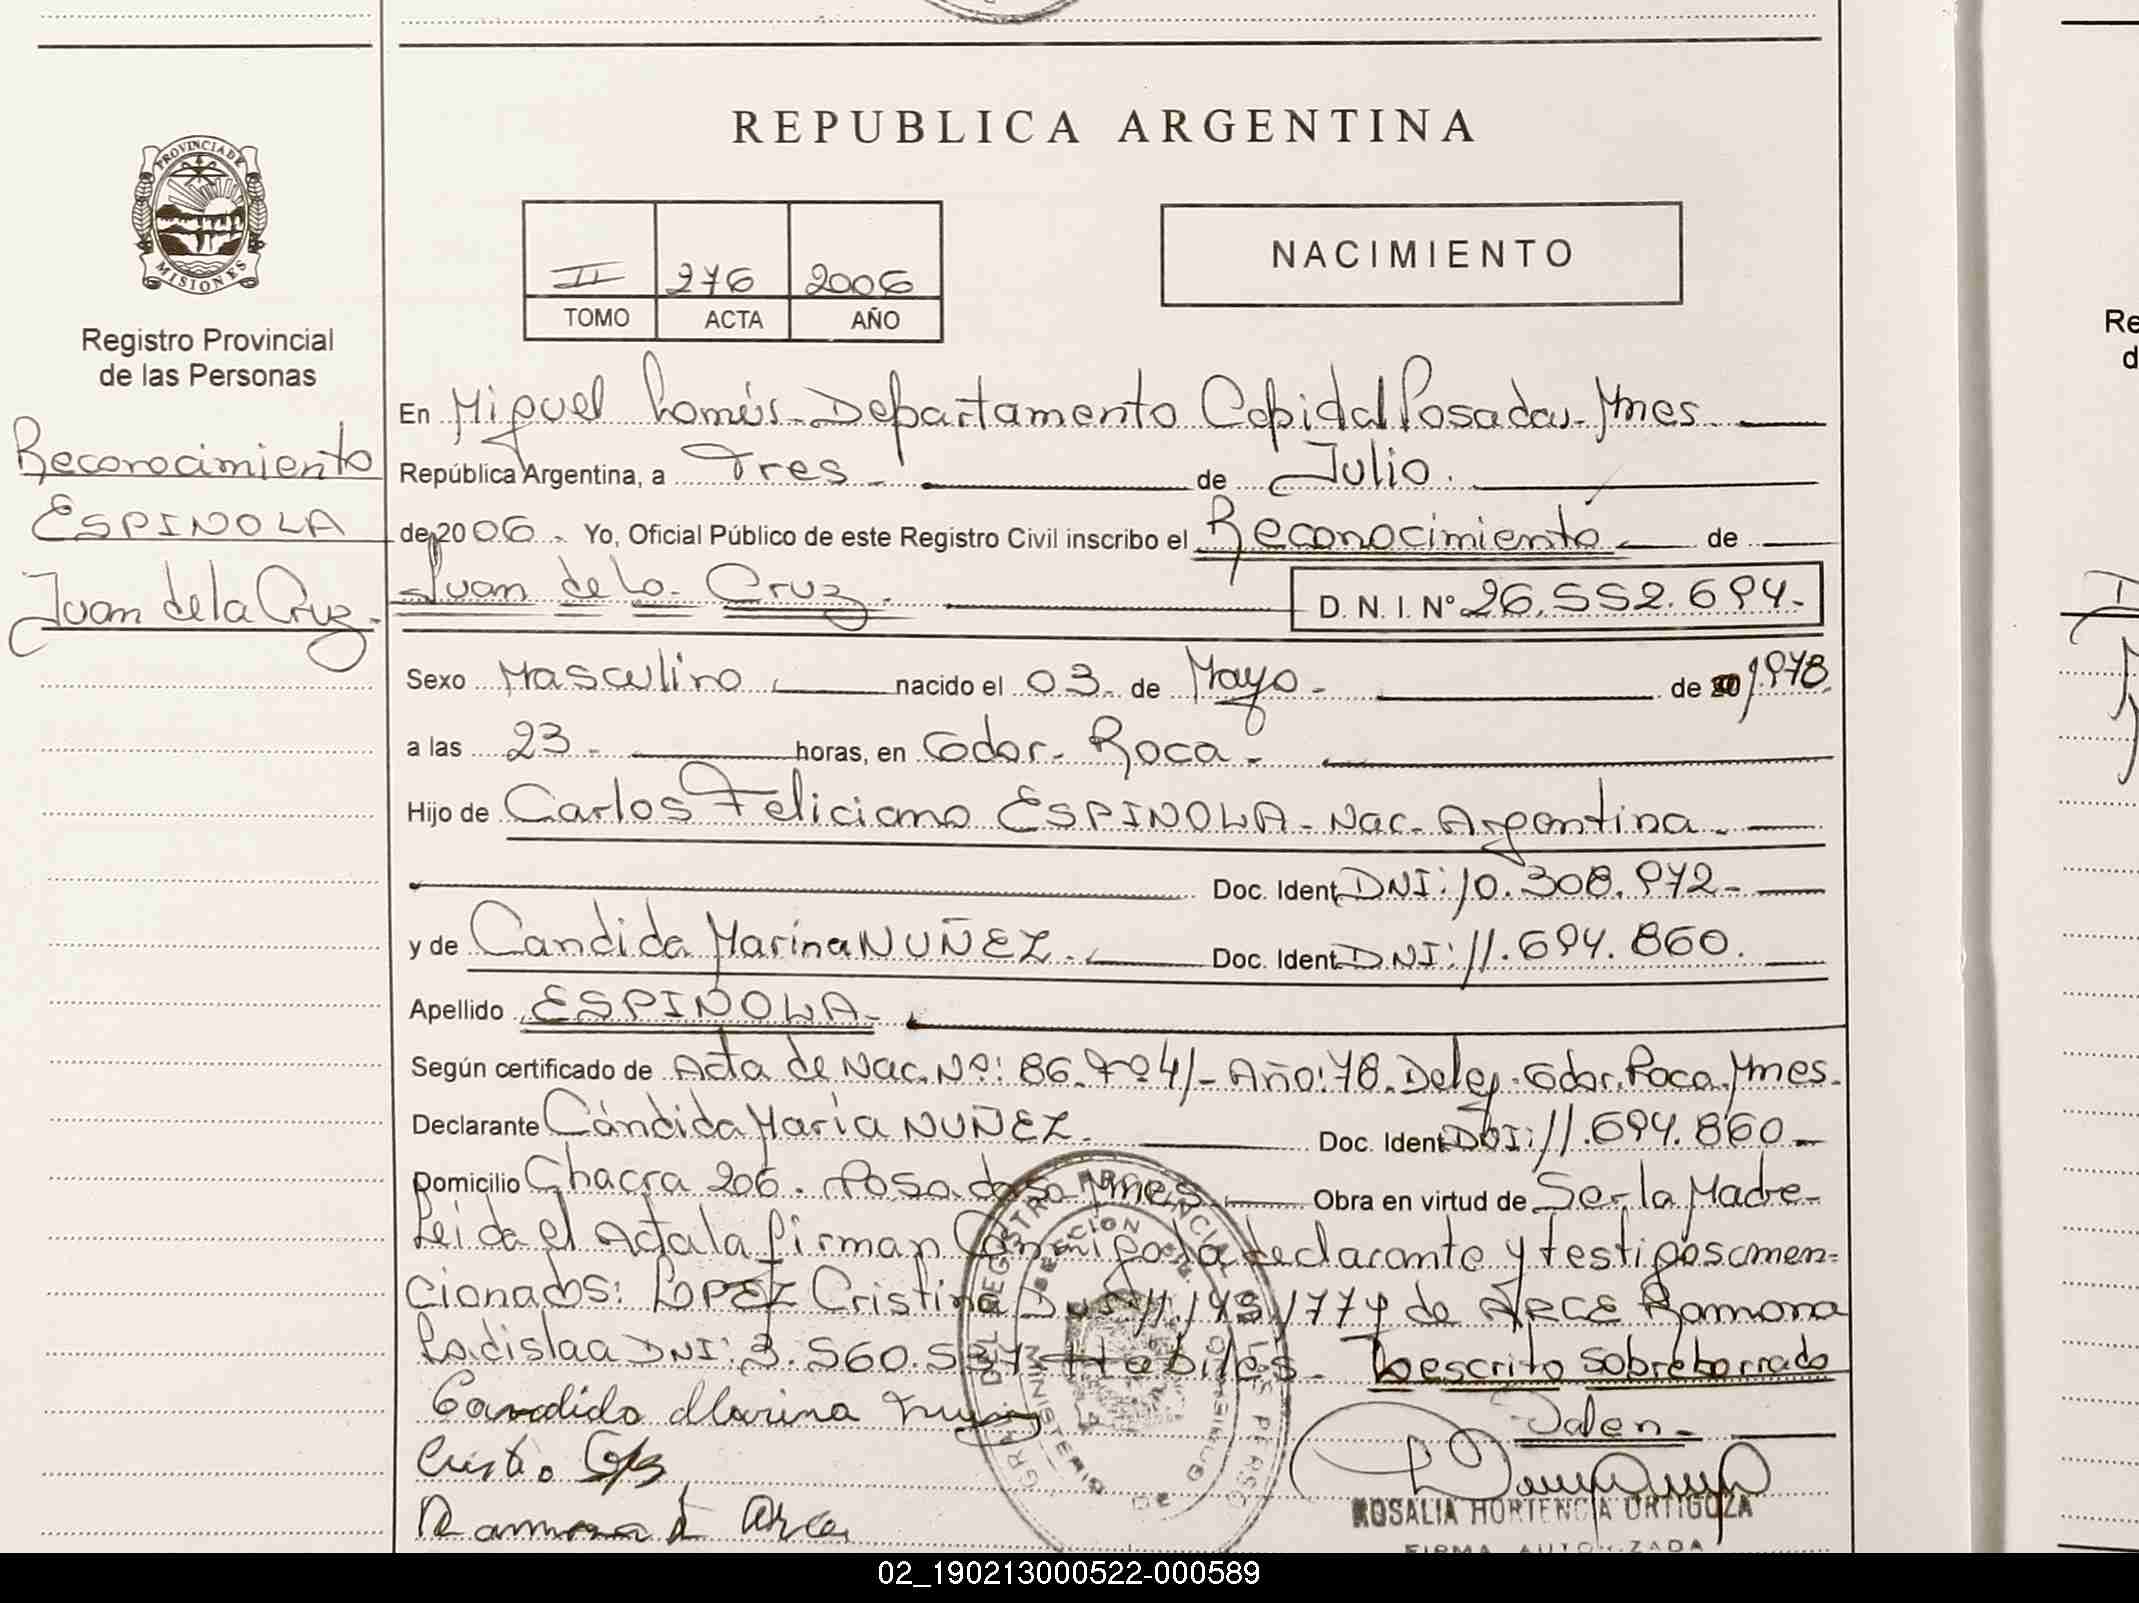 REPUBLICA ARGENTINA
PROVINCIA DE MISIONES
Registro Provincial
de las Personas
II 276 2006
TOMO ACTA AÑO
NACIMIENTO
Reconocimiento
ESPINOLA
Juan de la Cruz.
En Miguel Lanús - Departamento Capital Posadas - Mnes.
República Argentina, a Tres de Julio.
de 2006. Yo, Oficial Público de este Registro Civil inscribo el Reconocimiento de
Juan de la Cruz. D. N. I. Nº 26.552.694.
Sexo Masculino nacido el 03 de Mayo de 1978.
a las 23 horas, en Gdor. Roca
Hijo de Carlos Feliciano ESPINOLA - Nac. Argentina
Doc. Ident. DNI: 10.308.972
y de Candida Marina NUÑEZ. Doc. Ident. DNI: 11.694.860.
Apellido ESPINOLA
Según certificado de Acta de Nac. Nº: 86. Año: 78. Deleg. Gdor. Roca. Mnes.
Declarante Cándida María NUÑEZ. Doc. Ident. DNI: 11.694.860
Domicilio Chacra 206. Posadas Mnes Obra en virtud de Ser la Madre
Leida el Acta la firman Conmigo la declarante y testigos men=
cionados: LOPEZ Cristina DNI: de ARCE Ramona
Ladislaa DNI: 3.560.537 Habiles. Lo escrito sobre borrado
Valen.
Candida Marina
Ramona L Arce
ROSALIA HORTENCIA ORTIGOZA
FIRMA AUTORIZADA
Re
d
02_190213000522-000589